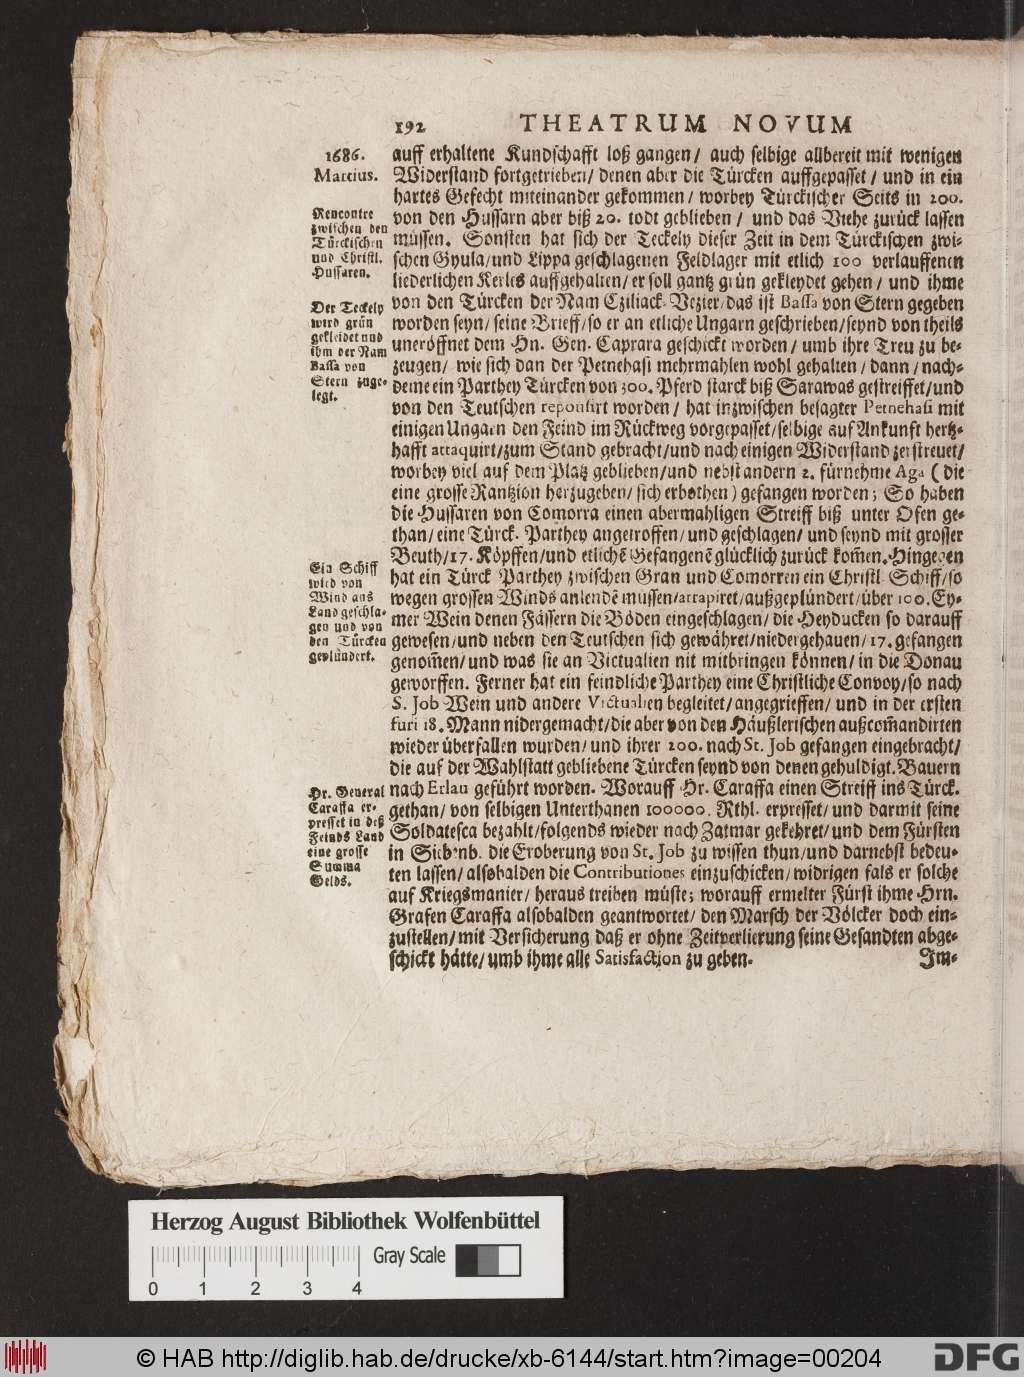 192 THEATRUM NOVUM
1686.
Martius.
Rencontre
zwischen den
Türckischen
und Christl.
Hussaren.
Der Teckely
wird grün
gekleidet und
ihm der Nam
Bassa von
Stern zuge-
legt.
Ein Schiff
wird von
Wind ans
Land geschla-
gen und von
den Türcken
geplündert.
Hr. General
Caraffa er-
presset in deß
Feinds Land
eine grosse
Summa
Gelds.
auff erhaltene Kundschafft loß gangen/ auch selbige allbereit mit wenigen
Widerstand fortgetrieben/ denen aber die Türcken auffgepasset/ und in ein
hartes Gefecht miteinander gekommen/ worbey Türckischer Seits in 200.
von den Hussarn aber biß 20. todt geblieben/ und das Viehe zurück lassen
müssen. Sonsten hat sich der Teckely dieser Zeit in dem Türckischen zwi-
schen Gyula/ und Lippa geschlagenen Feldlager mit etlich 100 verlauffenen
liederlichen Kerles auffgehalten/ er soll gantz grün gekleydet gehen/ und ihme
von den Türcken der Nam Cziliack-Vezier/ das ist Bassa von Stern gegeben
worden seyn/ seine Brieff/ so er an etliche Ungarn geschrieben/ seynd von theils
uneröffnet dem Hn. Gen. Caprara geschickt worden/ umb ihre Treu zu be-
zeugen/ wie sich dan der Petnehasi mehrmahlen wohl gehalten/ dann/ nach-
deme ein Parthey Türcken von 300. Pferd starck biß Sarawas gestreiffet/ und
von den Teutschen repousirt worden/ hat inzwischen besagter Petnehasi mit
einigen Ungarn den Feind im Rückweg vorgepasset/ selbige auf Ankunft hertz-
hafft attaquirt/ zum Stand gebracht/ und nach einigen Widerstand zerstreuet/
worbey viel auf dem Platz geblieben/ und nebst andern 2. fürnehme Aga (die
eine grosse Rantzion herzugeben/ sich erbothen) gefangen worden; So haben
die Hussaren von Comorra einen abermahligen Streiff biß unter Ofen ge-
than/ eine Türck. Parthey angetroffen/ und geschlagen/ und seynd mit grosser
Beuth/ 17. Köpffen/ und etlichē Gefangenē glücklich zurück kom̄en. Hingegen
hat ein Türck Parthey zwischen Gran und Comorren ein Christl. Schiff/ so
wegen grossen Winds anlendē mussen/ attapiret/ außgeplündert/ über 100. Ey-
mer Wein denen Fässern die Böden eingeschlagen/ die Heyducken so darauff
gewesen/ und neben den Teutschen sich gewähret/ niedergehauen/ 17. gefangen
genom̄en/ und was sie an Victualien nit mitbringen können/ in die Donau
geworffen. Ferner hat ein feindliche Parthey eine Christliche Convoy/ so nach
S. Job Wein und andere Victualien begleitet/ angegrieffen/ und in der ersten
furi 18. Mann nidergemacht/ die aber von den Häußlerischen außcom̄andirten
wieder überfallen wurden/ und ihrer 200. nach St. Job gefangen eingebracht/
die auf der Wahlstatt gebliebene Türcken seynd von denen gehuldigt. Bauern
nach Erlau geführt worden. Worauff Hr. Caraffa einen Streiff ins Türck.
gethan/ von selbigen Unterthanen 100000. Rthl. erpresset/ und darmit seine
Soldatesca bezahlt/ folgends wieder nach Zatmar gekehret/ und dem Fürsten
in Siebenb. die Eroberung von St. Job zu wissen thun/ und darnebst bedeu-
ten lassen/ alsobalden die Contributiones einzuschicken/ widrigen fals er solche
auf Kriegsmanier/ heraus treiben müste; worauff ermelter Fürst ihme Hrn.
Grafen Caraffa alsobalden geantwortet/ den Marsch der Völcker doch ein-
zustellen/ mit Versicherung daß er ohne Zeitverlierung seine Gesandten abge-
schickt hätte/ umb ihme alle Satisfaction zu geben.
Im-
Herzog August Bibliothek Wolfenbüttel
Gray Scale
0 1 2 3 4
© HAB http://diglib.hab.de/drucke/xb-6144/start.htm?image=00204
DFG